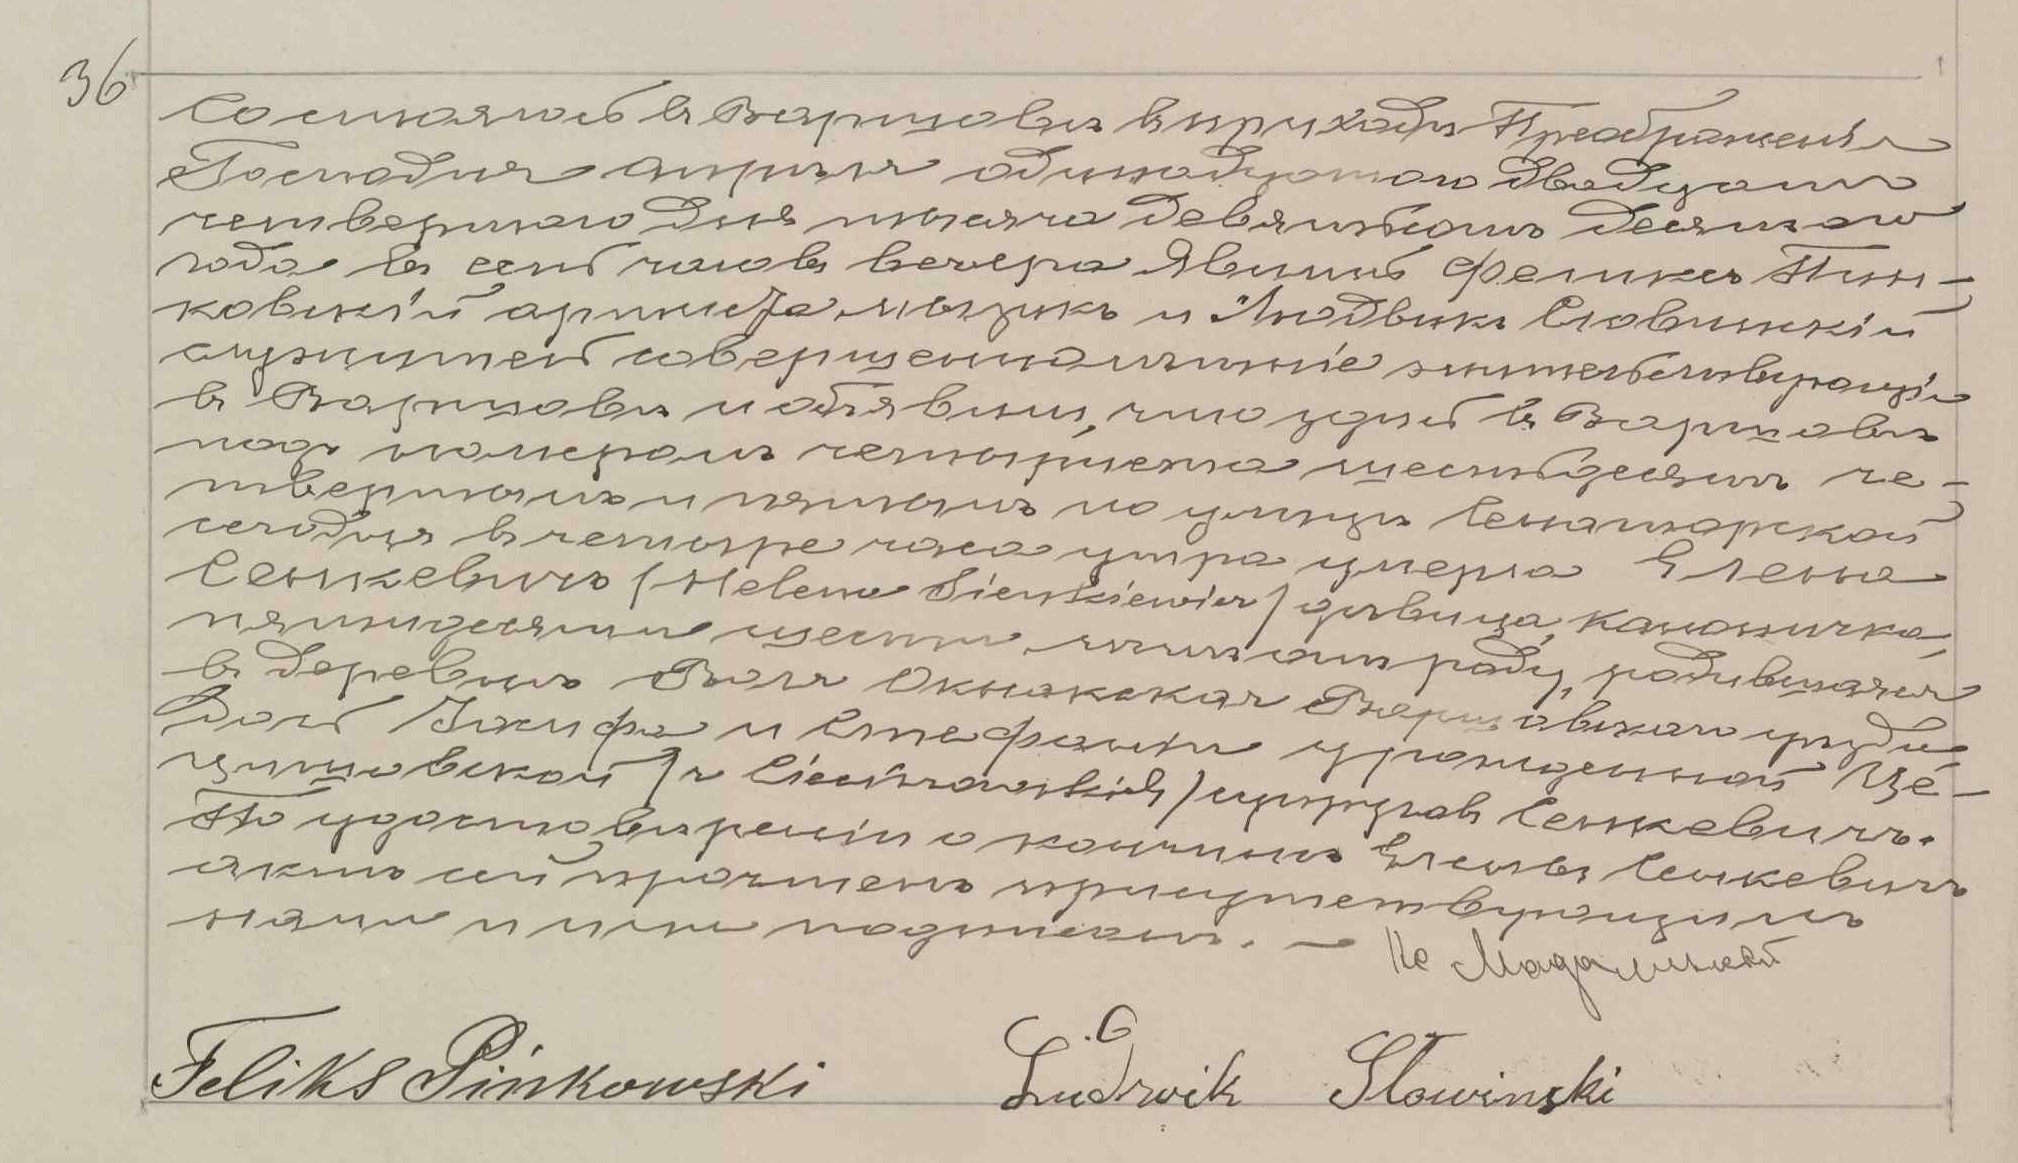 36
Состоялось въ Варшавѣ въ приходѣ Преображенія
Господня Апрѣля одинадцатого двадцать
четвертаго дня тысяча девятьсотъ десятаго
года въ семь часовъ вечера Явились Феликсъ Пин-
ковскій музыкъ и Людвикъ Словинскій
служитель совершеннолѣтніе жительствующіе
въ Варшавѣ и объявили, что здѣсь въ Варшавѣ
подъ номеромъ четыриста шестьдесятъ че-
твертымъ и пятымъ по улицѣ Сенаторской
сегодня въ четыре часа утра умерла Елена
Сенкевичъ /Helena Sienkiewicz/ дѣвица, каноничка,
пятидесяти шести лѣтъ отъ роду, родившаяся
въ деревнѣ Воля Окнянская Варшавскаго уѣзда,
дочь Іосифа и Стефаніи урожденной Це-
цишовской /z Cieciszowskich/ супруговъ Сенкевичъ.
По удостовѣреніи о кончинѣ Елены Сенкевичъ
актъ сей прочтенъ присутствующимъ
нами и ими подписанъ. —
Кс Мадалинскій
Feliks Pinkowski Ludwik Słowinski